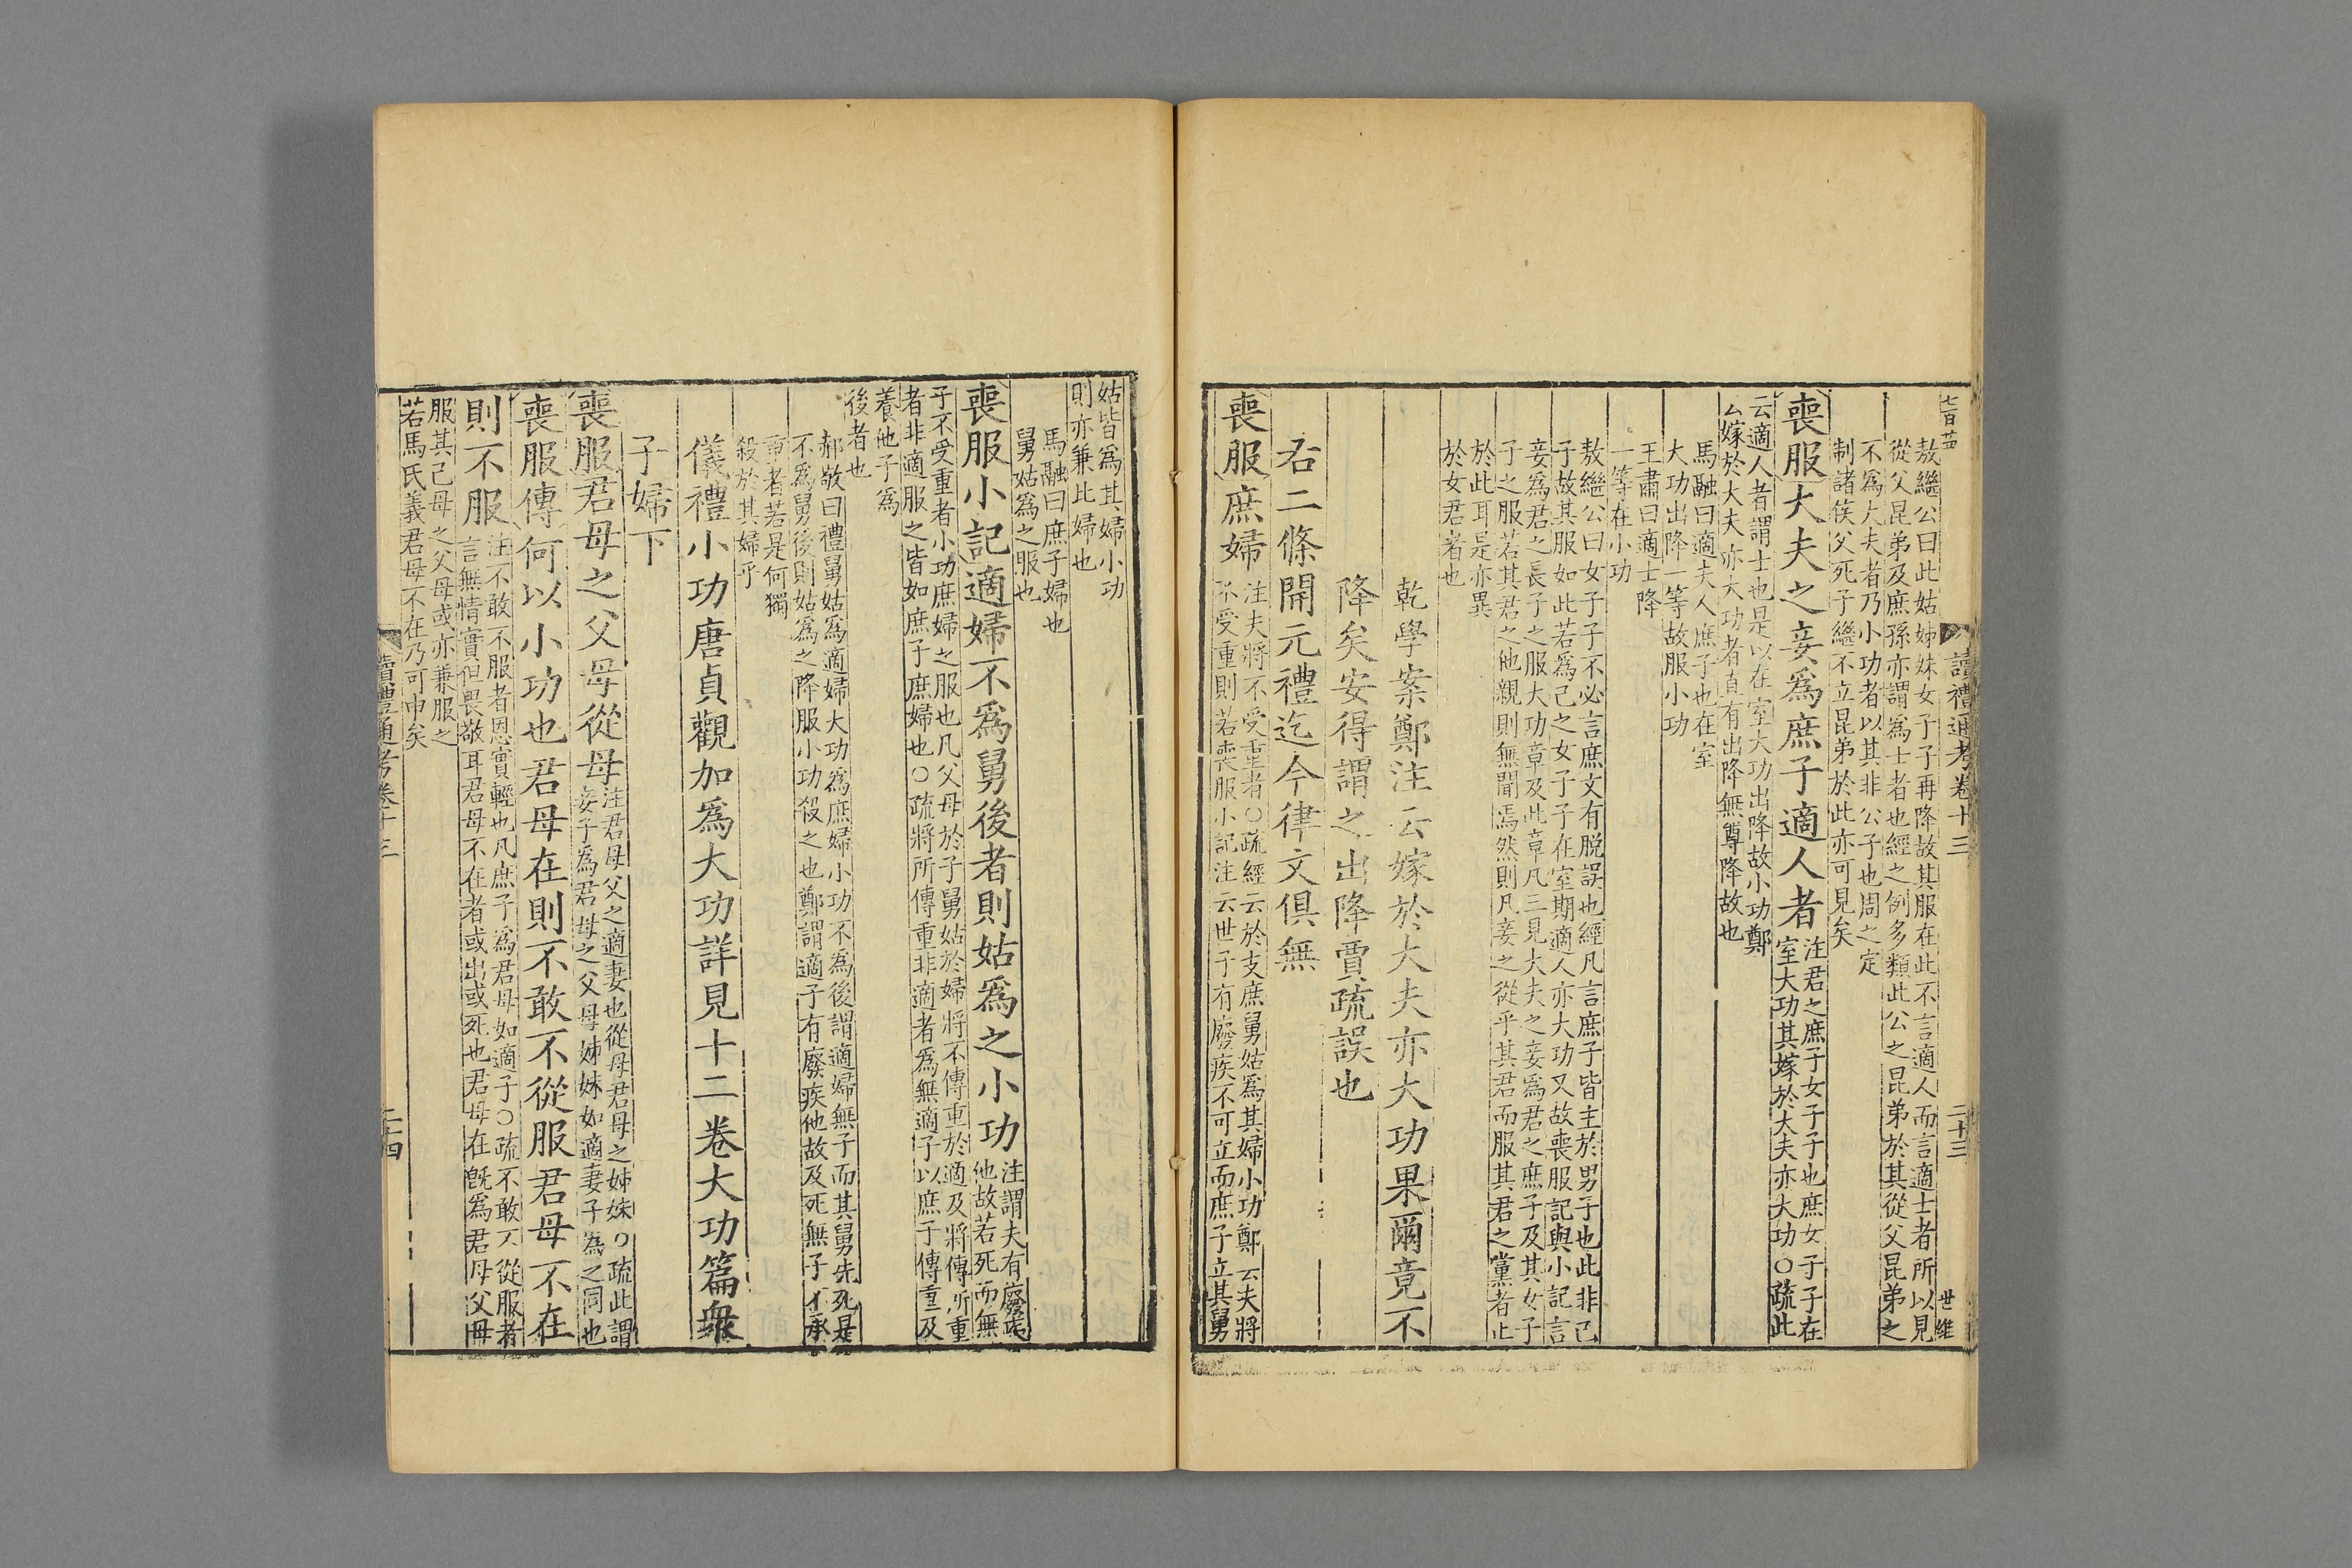 七百茄
讀禮通考卷十三
二十三
世維
敖繼公曰此姑姊妹女子子再降故其服在此不言適人而言適士者所以見
從父昆弟及庶孫亦謂爲士者也經之例多類此公之昆弟於其從父昆弟之
不爲大夫者乃小功者以其非公子也周之定
制諸侯父死子繼不立昆弟於此亦可見矣
喪服大夫之妾爲庶子適人者
注君之庶子女子子也庶女子子在
室大功其嫁於大夫亦大功○疏此
云適人者謂士也是以在室大功出降故小功鄭
云嫁於大夫亦大功者直有出降無尊降故也
馬融曰適夫人庶子也在室
大功出降一等故服小功
王肅曰適士降
一等在小功
敖繼公曰女子子不必言庶文有脱誤也經凡言庶子皆主於男子也此非己
子故其服如此若爲己之女子子在室期適人亦大功又故喪服記與小記言
妾爲君之長子之服大功章及此章凡三見大夫之妾爲君之庶子及其女子
子之服若其君之他親則無聞焉然則凡妾之從乎其君而服其君之黨者止
於此耳是亦異
於女君者也
乾學案鄭注云嫁於大夫亦大功果爾竟不
降矣安得謂之出降賈疏誤也
右二條開元禮迄今律文俱無
喪服庶婦
注夫將不受重者○疏經云於支庶舅姑爲其婦小功鄭云夫將
不受重則若喪服小記注云世子有廢疾不可立而庶子立其舅
姑皆爲其婦小功
則亦兼此婦也
馬融曰庶子婦也
舅姑爲之服也
喪服小記適婦不爲舅後者則姑爲之小功
注謂夫有廢疾
他故若死而無
子不受重者小功庶婦之服也凡父母於子舅姑於婦將不傳重於適及將傳所重
者非適服之皆如庶子庶婦也○疏將所傳重非適者爲無適子以庶子傳重及
養他子爲
後者也
郝敬曰禮舅姑爲適婦大功爲庶婦小功不爲後謂適婦無子而其舅先死是
不爲舅後則姑爲之降服小功殺之也鄭謂適子有廢疾他故及死無子不承
重者若是何獨
殺於其婦乎
儀禮小功唐貞觀加爲大功詳見十二卷大功篇衆
子婦下
喪服君母之父母從母
注君母父之適妻也從母君母之姊妹○疏此謂
妾子爲君母之父母姊妹如適妻子爲之同也
喪服傳何以小功也君母在則不敢不從服君母不在
則不服
注不敢不服者恩實輕也凡庶子爲君母如適子○疏不敢不從服者
言無情實但畏敬耳君母不在者或出或死也君母在旣爲君母父母
服其己母之父母或亦兼服之
若馬氏義君母不在乃可申矣
讀禮通考卷十三
二十四